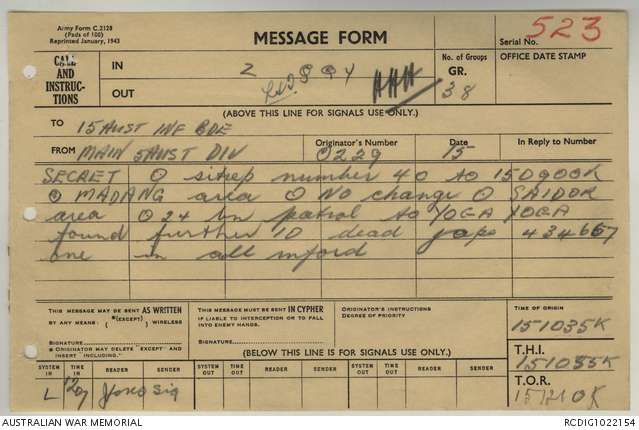 Army Form C.2128
(Pads of 100)
Reprinted January, 1943
MESSAGE FORM
Serial No. 523
CALL AND INSTRUCTIONS
IN
OUT
No. of Groups
GR.
38
OFFICE DATE STAMP
(ABOVE THIS LINE FOR SIGNALS USE ONLY.)
TO 15 AUST INF BDE
FROM MAIN 5 AUST DIV
Originator's Number
O229
Date
15
In Reply to Number
SECRET O sitrep number 40 to 150900K
O MADANG area O No change O SAIDOR
area O 24 Bn patrol to YOGA YOGA
found further 10 dead japs 434667
one in all inford
THIS MESSAGE MAY BE SENT AS WRITTEN
BY ANY MEANS. *(EXCEPT) WIRELESS
SIGNATURE
* ORIGINATOR MAY DELETE "EXCEPT" AND INSERT "INCLUDING."
THIS MESSAGE MUST BE SENT IN CYPHER
IF LIABLE TO INTERCEPTION OR TO FALL INTO ENEMY HANDS.
SIGNATURE
ORIGINATOR'S INSTRUCTIONS
DEGREE OF PRIORITY
TIME OF ORIGIN
151035K
(BELOW THIS LINE IS FOR SIGNALS USE ONLY.)
T.H.I.
151055K
T.O.R.
151210K
SYSTEM IN
TIME IN
READER
SENDER
SYSTEM OUT
TIME OUT
READER
SENDER
SYSTEM OUT
TIME OUT
READER
SENDER
L
AUSTRALIAN WAR MEMORIAL
RCDIG1022154